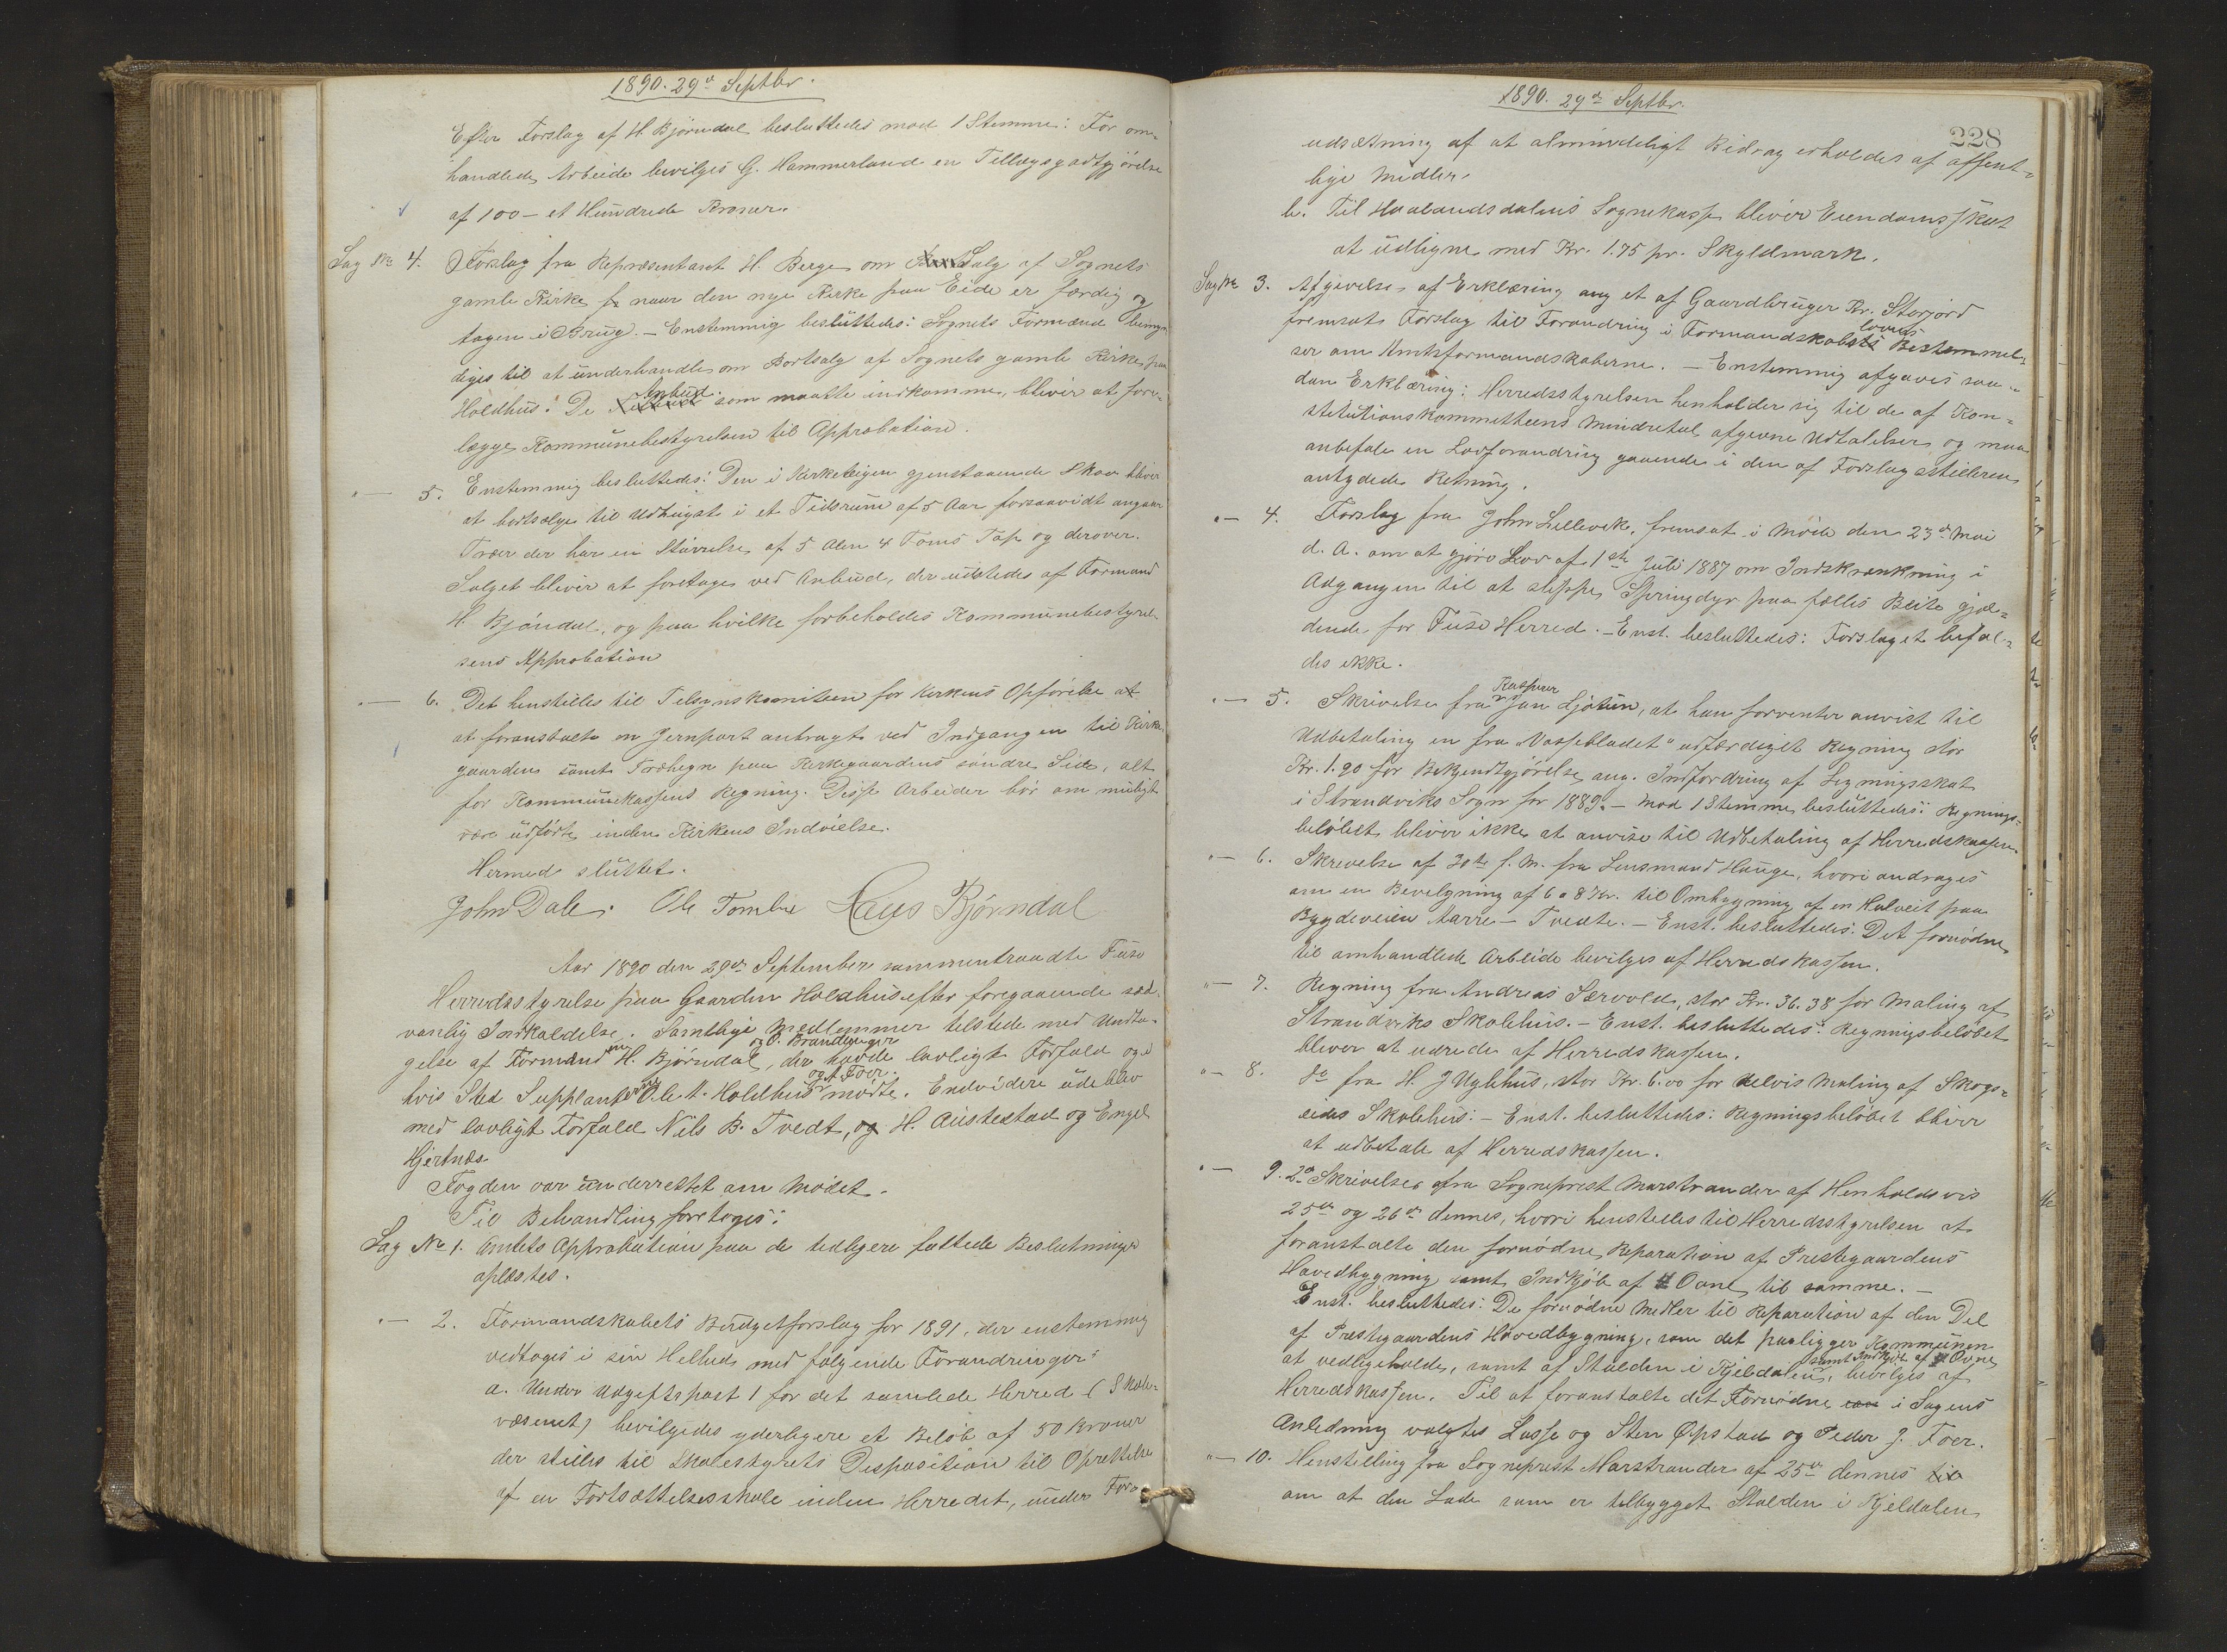 1890. 29de Septbr.
Efter Forslag af H. Bjørndal besluttedes mod 1 Stemme: For om-
handlede Arbeide bevilges G. Hammerland en Tillægsgodtgjørelse
af 100 – et Hundrede Kroner.
Sag No 4. Forslag fra Repræsentant H. Berge om Salg af Sognets
gamle Kirke naar den nye Kirke paa Eide er færdig og
tagen i Brug. – Enstemmig besluttedes: Sognets Formænd bemyn-
diges til at underhandle om Bortsalg af Sognets gamle Kirke paa
Holdhus. De Anbud som maatte indkomme, bliver at fore-
lægge Kommunebestyrelsen til Approbation.
" — 5. Enstemmig besluttedes: Den i Kirketeigen gjenstaaende Skov bliver
at bortsælge til Udhugst i et Tidsrum af 5 Aar forsaavidt angaar
Træer der har en Størrelse af 5 Alen 4 Toms Top og derover.
Salget bliver at foretage ved Anbud, der udstedes af Formand
H. Bjöndal, og paa hvilke forbeholdes Kommunebestyrel-
sens Approbation
" — 6. Det henstilles til Tilsynskomiteen for Kirkens Opførelse at
at foranstalte en Jernport anbragt ved Indgangen til Kirke-
gaarden samt Træhegn paa Kirkegaardens søndre Side, alt
for Kommunekassens Regning. Disse Arbeider bør om muligt
være udførte inden Kirkens Indvielse.
Hermed sluttet.
John Dale. Ole Tombre Hans Bjørndal
Aar 1890 den 29de September sammentraadte Fuse
Herredsstyrelse paa Gaarden Holdhus efter foregaaende sæd-
vanlig Indkaldelse. Samtlige Medlemmer tilstede med Undta-
og O. Brandanger
gelse af Formand H. Bjørndal, der havde lovligt Forfald og i
og A Foer.
hvis Sted Suppleanterne Ole M. Holdhus mødte. Endvidere udeblev
med lovligt Forfald Nils B. Tvedt, og H. Austestad og Engel
Hjertnæs
Fogden var underrettet om Mødet.
Til Behandling foretoges:
Sag No 1. Amtets Approbation paa de tidligere fattede Beslutninger
oplæstes.
" — 2. Formandskabets Budgetforslag for 1891, der enstemmig
vedtoges i sin Helhed med følgende Forandringer:
a. Under Udgiftspost 1 for det samlede Herred (Skole-
væsenet) bevilgedes yderligere et Beløb af 50 Kroner
der stilles til Skolestyrets Disposition til Oprettelse
af en Fortsættelsesskole inden Herredet, under For-
1890. 29de Septbr.
228
udsætning af at almindeligt Bidrag erholdes af offent-
lige Midler.
b. Til Haalandsdalens Sognekasse bliver Eiendomsskat
at udligne med Kr. 1.75 pr. Skyldmark.
Sag No 3. Afgivelse af Erklæring ang et af Gaardbruger Kr. Storjord
fremsat Forslag til Forandring i Formandskabslovens Bestemmel-
ser om Amtsformandskaberne. – Enstemmig afgaves saa-
dan Erklæring: Herredsstyrelsen henholder sig til de af Kon-
stitutionskommitteens Mindretal afgivne Udtalelser og maa
anbefale en Lovforandring gaaende i den af Forslagsstilleren
antydede Retning.
" — 4. Forslag fra John Lillevik, fremsat i Møde den 23de Mai
d. A. om at gjøre Lov af 1ste Juli 1887 om Indskrænkning i
Adgangen til at slippe Springdyr paa fælles Beite gjæl-
dende for Fuse Herred. – Enst. besluttedes: Forslaget befal-
des ikke.
" — 5. Skrivelse fra Kasserer Jan Ljotun, at han forventer anvist til
Udbetaling en fra "Vossebladet" udfærdiget Regning stor
Kr. 1.90 for Bekjendtgjørelse ang. Indfordring af Ligningsskat
i Strandviks Sogn for 1889. – Mod 1 Stemme besluttedes: Regnings-
beløbet bliver ikke at anvise til Udbetaling af Herredskassen.
" — 6. Skrivelse af 30te f. M. fra Lensmand Hauge, hvori andrages
om en Bevilgning af 6 a 8 Kr. til Ombygning af en Hulveit paa
Bygdeveien Aarre – Tveite. – Enst. besluttedes: Det fornødne
til omhandlede Arbeide bevilges af Herredskassen.
" — 7. Regning fra Andreas Sævold, stor Kr. 36.38 for Maling af
Strandviks Skolehus. – Enst. besluttedes: Regningsbeløbet
bliver at udrede af Herredskassen.
" — 8. do fra H. J Uglehus, stor Kr. 6.00 for delvis Maling af Skogs-
eides Skolehus: – Enst. besluttedes: Regningsbeløbet bliver
at udbetale af Herredskassen.
" — 9. 2de Skrivelser fra Sogneprest Marstrander af Henholdsvis
25de og 26de dennes, hvori henstilles til Herredsstyrelsen at
foranstalte den fornødne Reparation af Prestegaardens
Hovedbygning samt Indkjøb af Ovne til samme. –
Enst. besluttedes: De fornødne Midler til Reparation af den Del
af Prestegaardens Hovedbygning, som det paaligger Kommunen
samt Indkjøb af Ovne
at vedligeholde, samt af Stalden i Kjeldalen, bevilges af
Herredskassen. Til at foranstalte det Fornødne i Sagens
Anledning valgtes Lasse og Sten Øpstad og Peder J. Foer.
" — 10. Henstilling fra Sogneprest Marstrander af 25de dennes
om at den Lade som er tilbygget Stalden i Kjeldalen